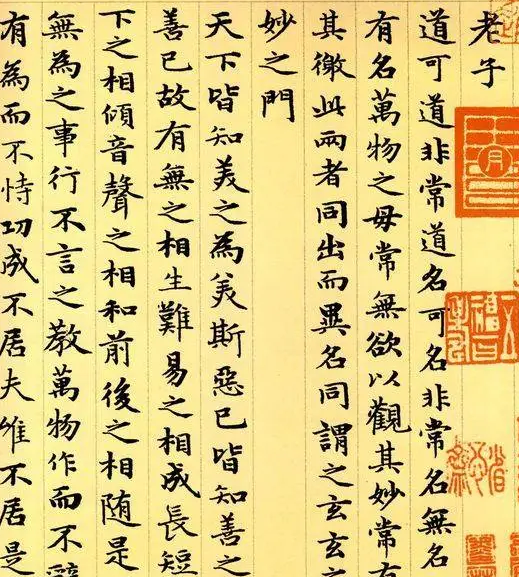 老子
道可道非常道名可名非常名無名
有名萬物之母常無欲以觀其妙常有
其徼此兩者同出而異名同謂之玄玄之
妙之門
天下皆知美之為美斯惡已皆知善之
善已故有無之相生難易之相成長短
下之相傾音聲之相和前後之相随是
無為之事行不言之教萬物作而不辭
有為而不恃功成不居夫惟不居是